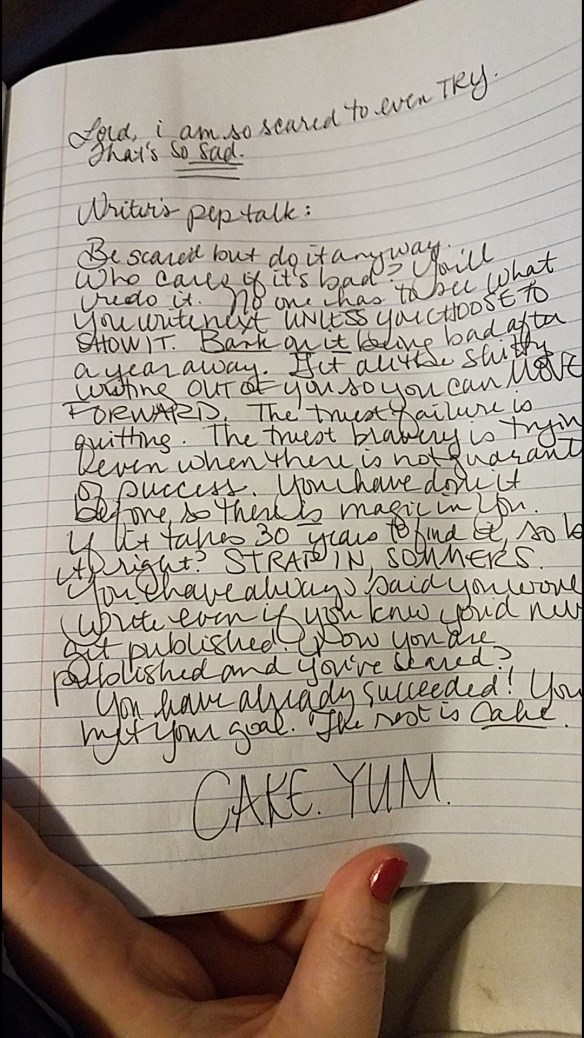 Lord, i am so scared to even TRY.
That's so sad.
Writer's pep talk:
Be scared but do it anyway.
Who cares if it's bad? You'll
redo it. No one has to see what
you write next UNLESS YOU CHOOSE TO
SHOW IT. Bank on it being bad after
a year away. Get all the shitty
writing OUT OF you so you can MOVE
FORWARD. The truest failure is
quitting. The truest bravery is tryin
even when there is not guarant
of success. You have done it
before, so there is magic in you.
If it takes 30 years to find it, so b
it, right? STRAP IN, SOMMERS.
You have always said you would
write even if you knew you'd nev
get published. Now you are
published and you're scared?
You have already succeeded! You
met your goal. The rest is Cake.
CAKE. YUM.